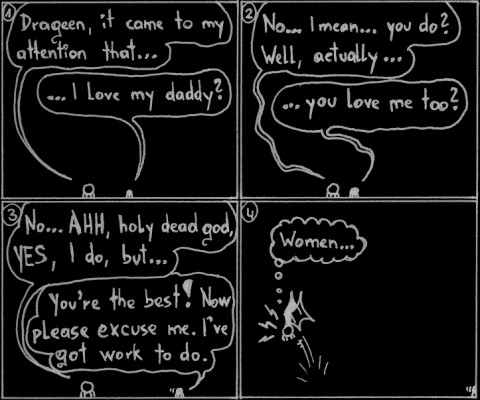 1
Drageen, it came to my
attention that...
...I Love my daddy?
2
No... I mean... you do?
Well, actually...
...you love me too?
3
No... AHH, holy dead god,
YES, I do, but...
You're the best! Now
please excuse me. I've
got work to do.
4
Women...